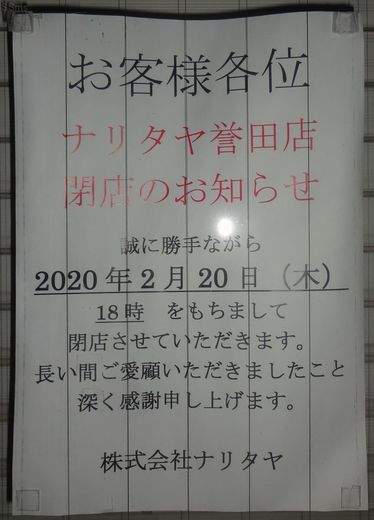 お客様各位
ナリタヤ誉田店
閉店のお知らせ
誠に勝手ながら
2020年2月20日（木）
18時　をもちまして
閉店させていただきます。
長い間ご愛顧いただきましたこと
深く感謝申し上げます。
株式会社ナリタヤ